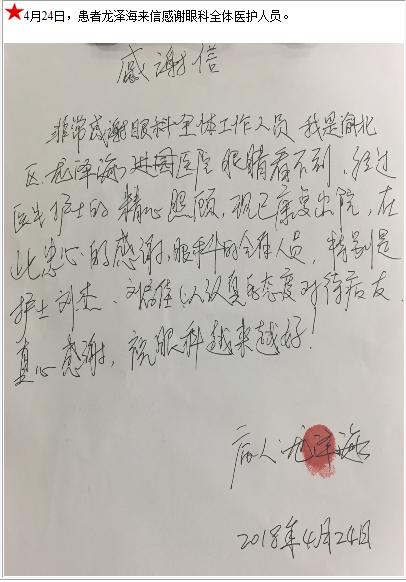 ★4月24日，患者龙泽海来信感谢眼科全体医护人员。
感谢信
非常感谢眼科全体工作人员 我是渝北
区，龙泽海，进医院 眼睛看不到，经过
医生护士的精心照顾，现已康复出院，在
此忠心的感谢，眼科的全体人员，特别是
护士刘杰、刘佳以认真的态度对待病友
真心感谢，祝眼科越来越好！
病人：龙泽海
2018年4月24日